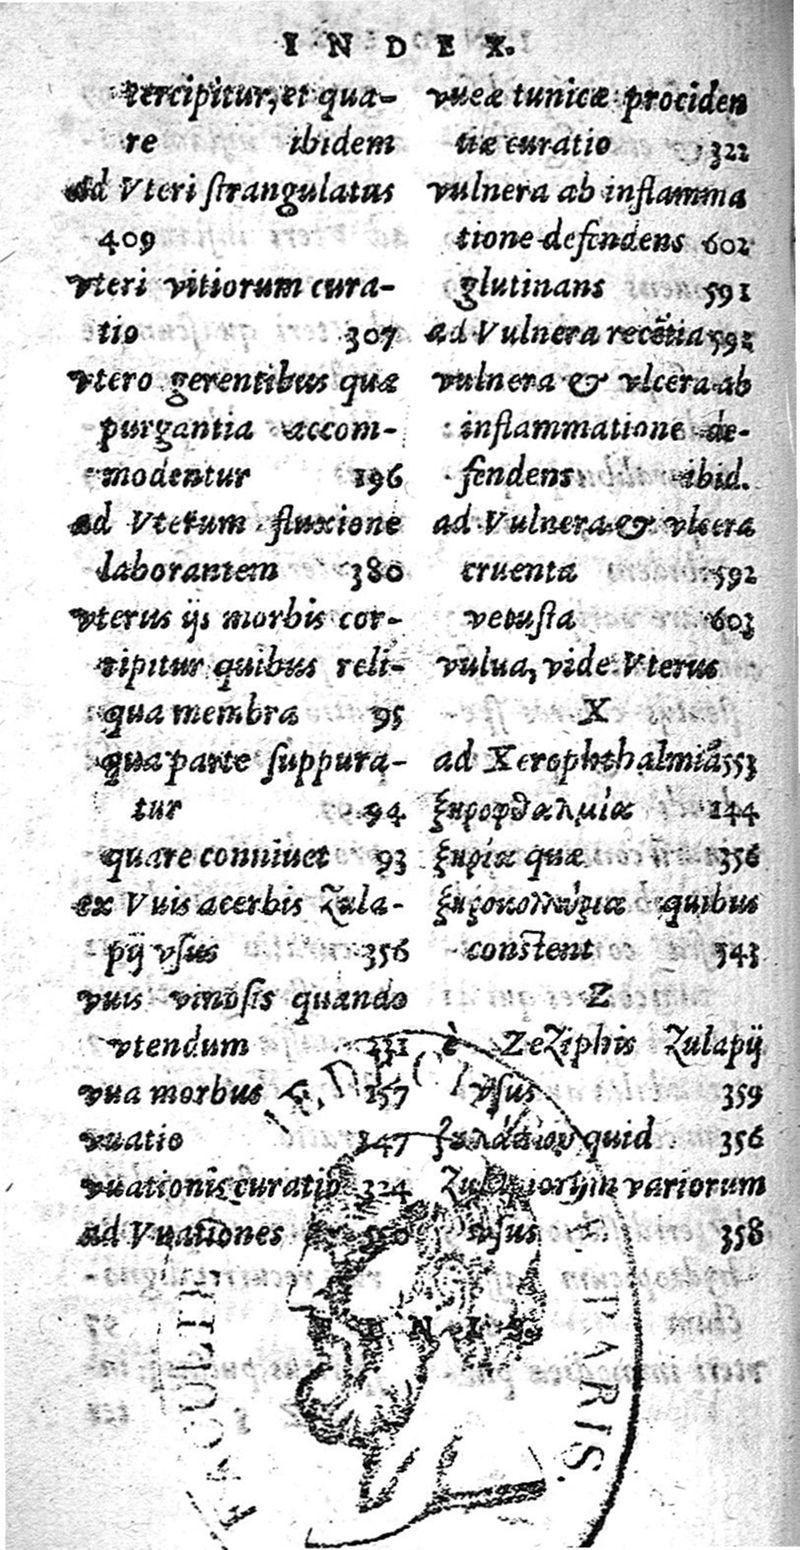 INDEX.
tercipitur, et qua-
re ibidem
ad Vteri strangulatus
409
vteri vitiorum cura-
tio 307
vtero gerentibus quæ
purgantia accom-
modentur 196
ad Vterum fluxione
laborantem 380
vterus ijs morbis cor-
ripitur quibus reli-
qua membra 95
qua parte suppura-
tur 94
quare conniuet 93
ex Vuis acerbis Zula-
pij vsus 356
vuis vinosis quando
vtendum 231
vua morbus 157
vuatio 147
vuationis curatio 324
ad Vuationes
vueæ tunicæ prociden
tiæ curatio 322
vulnera ab inflamma
tione defendens 602
glutinans 591
ad Vulnera recẽtia
vulnera & vlcera ab
inflammatione de-
fendens ibid.
ad Vulnera & vlcera
cruenta 592
vetusta 603
vulua, vide Vterus
X
ad Xerophthalmiã 553
ξηροφθαλμία 144
ξηρία quæ 356
ξηροκολλύρια quibus
constent 343
Z
è ZeZiphis Zulapij
vsus 359
ζουλάπιον quid 356
Zulapiorum variorum
vsus 358
FINIS.
FACULTE DE MEDECINE PARIS.